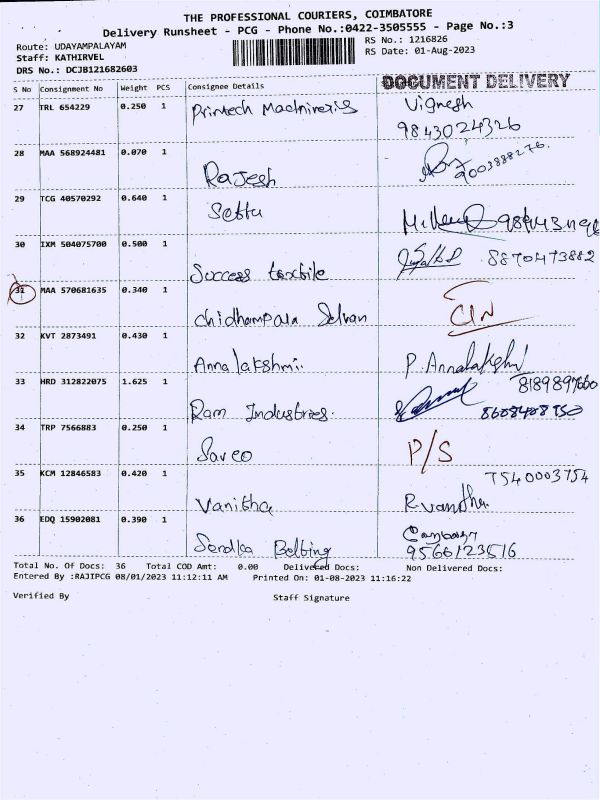 THE PROFESSIONAL COURIERS, COIMBATORE
Delivery Runsheet - PCG - Phone No.:0422-3505555 - Page No.:3
Route: UDAYAMPALAYAM
RS No.: 1216826
Staff: KATHIRVEL
RS Date: 01-Aug-2023
DRS No.: DCJB121682603
DOCUMENT DELIVERY
S No Consignment No Weight PCS Consignee Details
27 TRL 654229 0.250 1 Printech Machineries Vignesh
9843024326
28 MAA 568924481 0.070 1 Rajesh
29 TCG 40570292 0.640 1 Settu
30 IXM 504075700 0.500 1 Success textile 8870473882
31 MAA 570681635 0.340 1 Chidhampara Selvan
32 KVT 2873491 0.430 1 Annalakshmi P. Annalakshmi
33 HRD 312822075 1.625 1 Ram Industries
34 TRP 7566883 0.250 1 Saveo P/S
35 KCM 12846583 0.420 1 Vanitha 7540003754
36 EDQ 15902081 0.390 1 Belting
9566123516
Total No. Of Docs: 36 Total COD Amt: 0.00 Delivered Docs: Non Delivered Docs:
Entered By :RAJIPCG 08/01/2023 11:12:11 AM Printed On: 01-08-2023 11:16:22
Verified By Staff Signature